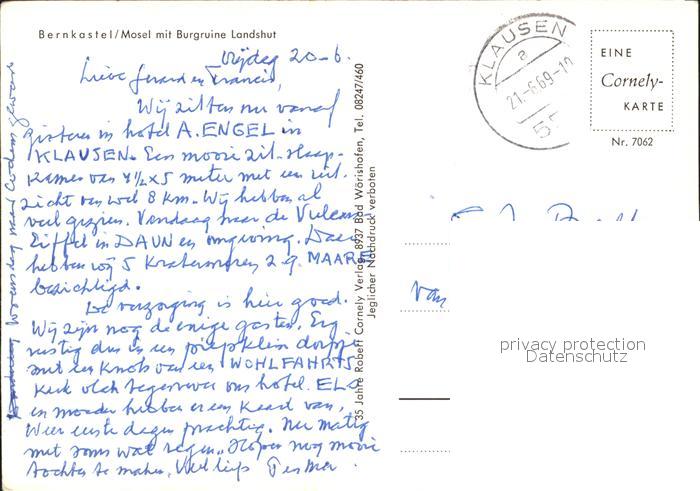 Bernkastel/Mosel mit Burgruine Landshut
Vrijdag 20-6.
Lieve Gerard en Francis,
Wij zitten nu vanaf
gisteren in hotel A. ENGEL in
KLAUSEN. Een mooie zit-slaap-
kamer van 4½x5 meter met een uit-
zicht van wel 8 km. Wij hebben al
veel gezien. Vandaag naar de Vulcan
Eiffel in DAUN en omgeving. Daar
hebben wij 5 Kratermeren z.g. MAAREN
bezichtigd.
De verzorging is hier goed.
Wij zijn nog de enige gasten. Erg
rustig dus in een piepklein dorpje
met een knots van een WOHLFAHRTS
Kerk vlak tegenover ons hotel. ELS
en moeder hebben er een kaart van.
Weer eerste dagen prachtig. Nu matig
met soms wat regen. Hopen nog mooie
tochten te maken. Veel liefs
Woensdag naar Cochem geweest
35 Jahre Robert Cornely Verlag, 8937 Bad Wörishofen, Tel. 08247/460
Jeglicher Nachdruck verboten
KLAUSEN
a
21.-6.69-12
55
EINE
Cornely-
KARTE
Nr. 7062
van
privacy protection
Datenschutz